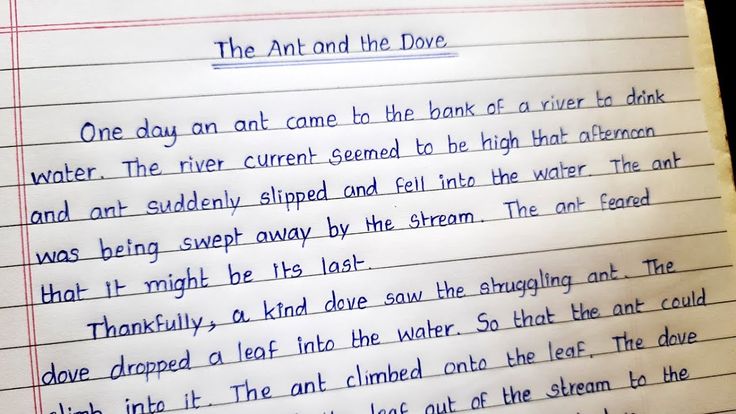 The Ant and the Dove
One day an ant came to the bank of a river to drink
water. The river current seemed to be high that afternoon
and ant suddenly slipped and fell into the water. The ant
was being swept away by the stream. The ant feared
that it might be its last.
Thankfully, a kind dove saw the struggling ant. The
dove dropped a leaf into the water. So that the ant could
climb into it. The ant climbed onto the leaf. The dove
leaf out of the stream to the